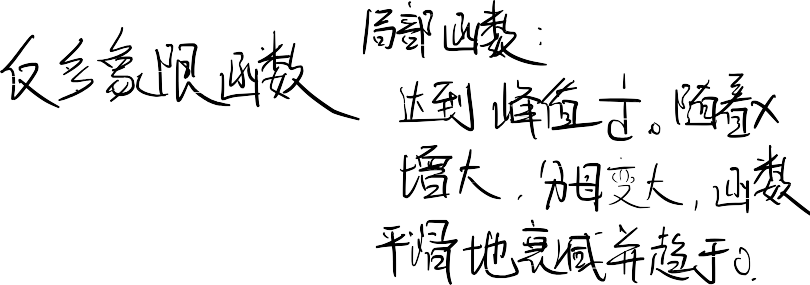 仅多象限函数
局部函数：
达到峰值 1/d。随着x
增大，分母变大，函数
平滑地衰减并趋于0.